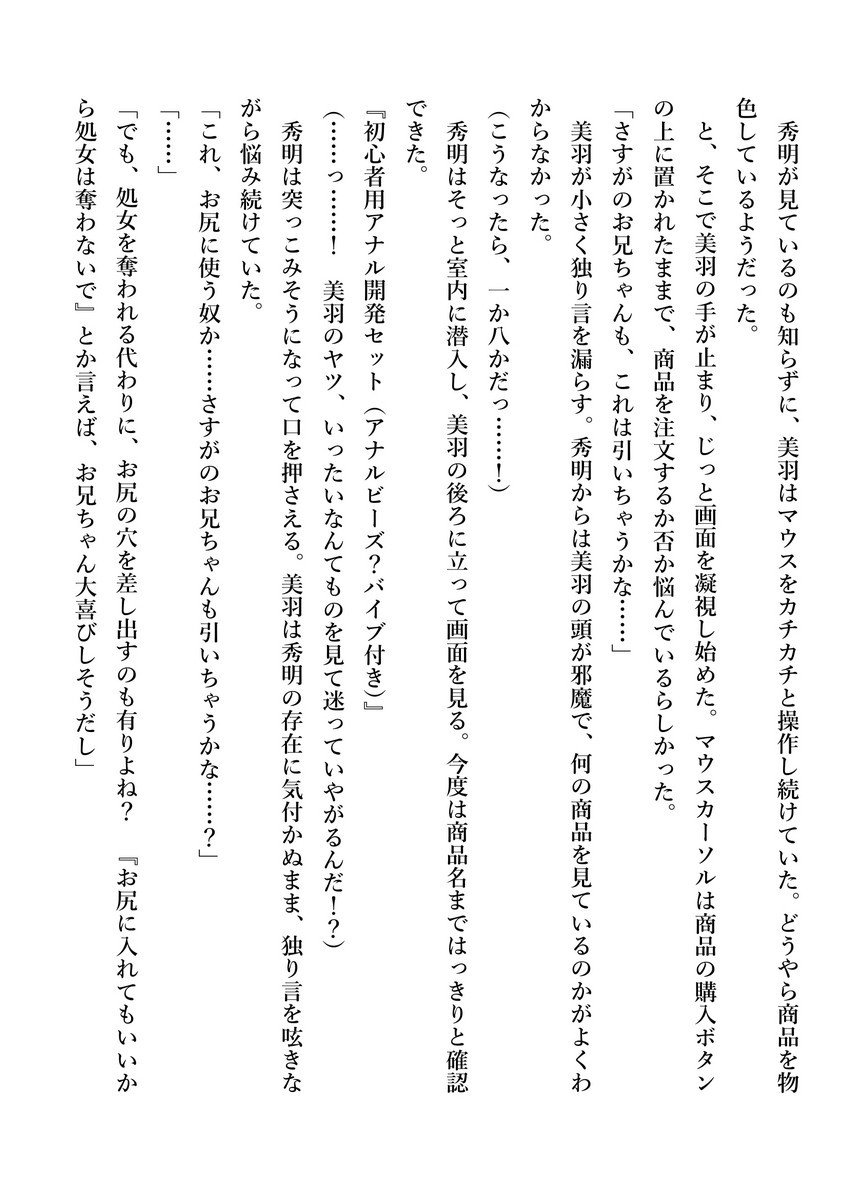 秀明が見ているのも知らずに、美羽はマウスをカチカチと操作し続けていた。どうやら商品を物
色しているようだった。
と、そこで美羽の手が止まり、じっと画面を凝視し始めた。マウスカーソルは商品の購入ボタン
の上に置かれたままで、商品を注文するか否か悩んでいるらしかった。
「さすがのお兄ちゃんも、これは引いちゃうかな……」
美羽が小さく独り言を漏らす。秀明からは美羽の頭が邪魔で、何の商品を見ているのかがよくわ
からなかった。
(こうなったら、一か八かだっ……！)
秀明はそっと室内に潜入し、美羽の後ろに立って画面を見る。今度は商品名まではっきりと確認
できた。
『初心者用アナル開発セット（アナルビーズ？バイブ付き）』
(……っ……！　美羽のヤツ、いったいなんてものを見て迷っていやがるんだ！？)
秀明は突っこみそうになって口を押さえる。美羽は秀明の存在に気付かぬまま、独り言を呟きな
がら悩み続けていた。
「これ、お尻に使う奴か……さすがのお兄ちゃんも引いちゃうかな……？」
「……」
「でも、処女を奪われる代わりに、お尻の穴を差し出すのも有りよね？　『お尻に入れてもいいか
ら処女は奪わないで』とか言えば、お兄ちゃん大喜びしそうだし」